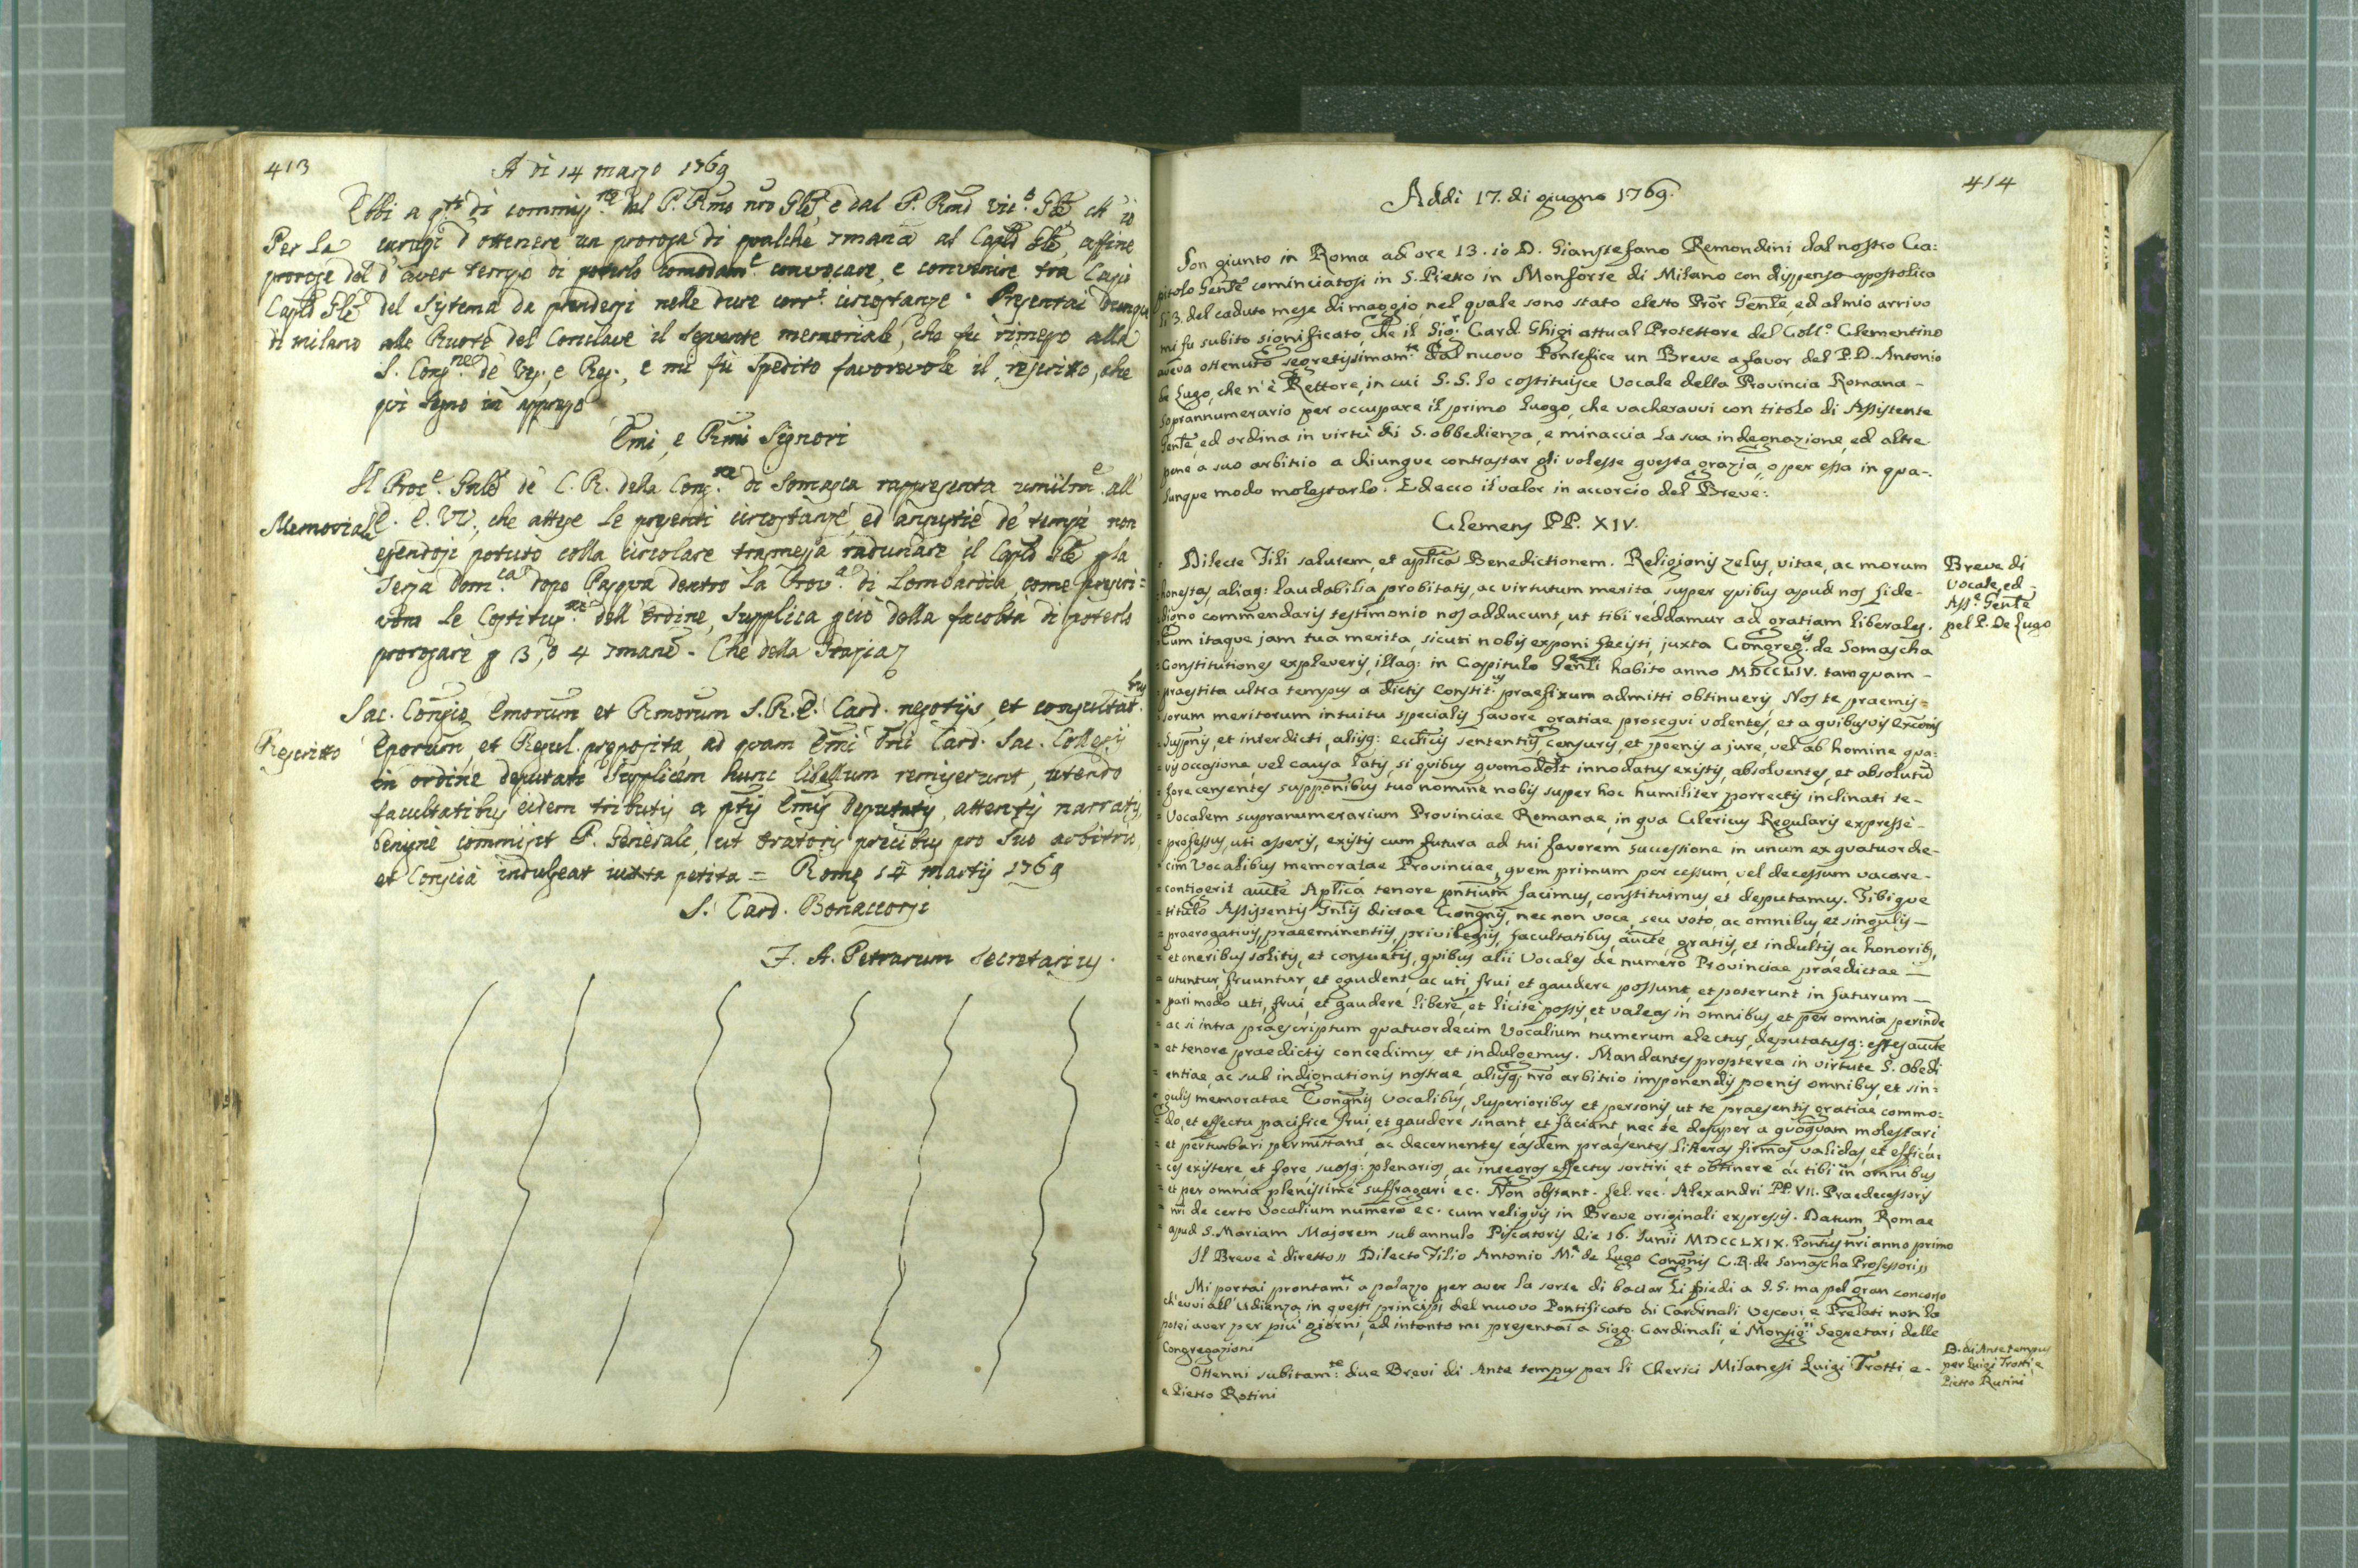 413
A di 14 marzo 1769
Ebbi a q.ti di commiss.ne dal P. Rmo nro Gle, e dal P. Rmo Vic.o Gle ch' io
Per la
curassi d'ottenere una proroga di qualche 7mana al Caplo Gle, affine
proroga del
d' aver tempo di poterlo comodam.e convocare, e convenire tra Capi
Caplo Gle
del sistema da prendersi nelle dure corr.ti circostanze. Presentai dunque
di milano
alle Ruote del Conclave il seguente memoriale, che fu rimesso alla
S. Cong.ne de Ves. e Reg., e mi fù spedito favorevole il rescritto, che
quì segno in appresso
Emi, e Rmi Signori
Il Proc.e Gnle de C. R. della Cong.ne di Somasca rappresenta umilm.e all'
Memoriale
E. E. VV., che attese le presenti circostanze, ed angustie de' tempi non
essendosi potuto colla circolare trasmessa radunare il Caplo Gle p la
Terza Dom.ca dopo Pasqua dentro la Prov.a di Lombardia, come prescri=
vono le Costituz.ni dell' Ordine, supplica pciò della facoltà di poterlo
prorogare p 3, o 4 7mane. Che della Grazia
Sac. Congio Emorum et Rmorum S. R. E. Card. negotijs, et consultat.bus
Rescritto
Eporum, et Regul. preposita, ad quam Emi Dni Card. Sac. Collegij
in ordine deputati supplicem hunc libellum remiserunt, utendo
facultatibus eidem tributis a ptis Emis Deputatis, attentis narratis,
benigne commisit P. Generale, ut Oratoris precibus pro suo arbitrio,
et Conscià indulgeat iuxta petita = Rome 14 Martij 1769
S. Card. Bonaccorsi
F. A. Petrarum Secretarius.
414
Addi 17. di giugno 1769.
Son giunto in Roma ad ore 13. io D. Gianstefano Remondini dal nostro Ca:
pitolo Genle cominciatosi in S. Pietro in Monforte di Milano con dispensa apostolica
li 3. del caduto mese di maggio, nel quale sono stato eletto Pror Genle, ed al mio arrivo
mi fu subito significato, che il Sig.r Card. Ghigi attual Protettore del Coll.o Clementino
aveva ottenuto segretissimam.te dal nuovo Pontefice un Breve a favor del P. D. Antonio
de Lugo, che n'è Rettore, in cui S. S. lo costituisce Vocale della Provincia Romana -
soprannumerario per occupare il primo luogo, che vacheravvi con titolo di Assistente
Genle, ed ordina in virtù di S. obbedienza, e minaccia la sua indegnazione, ed altre
pene a suo arbitrio a chiunque contrastar gli volesse questa grazia, o per essa in qua-
lunque modo molestarlo. Ed ecco il valor in accorcio del Breve:
Clemens PP. XIV.
Dilecte Fili salutem, et aplica Benedictionem. Religionis zelus, vitae, ac morum
Breve di
honestas, aliaq: laudabilia probitatis, ac virtutum merita, super quibus apud nos fide-
Vocale, ed
Ass.e Genle
digno commendaris testimonio nos adducunt, ut tibi reddamur ad gratiam liberales.
pel P. De Lugo
Cum itaque jam tua merita, sicuti nobis exponi fecisti, juxta Congreg.is de Somascha
Constitutiones expleveris, illaq: in Capitulo Genli habito anno MDCCLIV. tamquam -
praestita ultra tempus a dictis Constit.us praefixum admitti obtinueris, Nos te praemis=
sorum meritorum intuitu specialis favore gratiae prosequi volentes, et a quibusvis excōis
suspnis, et interdicti, aliisq: ecclicis sententiis, censuris, et poenis a jure, vel ab homine qua:
vis occasione, vel causa latis, si quibus quomodolt innodatus existis, absolventes, et absolutū
fore censentes supponibus tuo nomine nobis super hoc humiliter porrectis inclinati te -
Vocalem supranumerarium Provinciae Romanae, in qua Clericus Regularis expressè -
professus, uti asseris, existis cum futura ad tui favorem successione in unum ex quatuorde-
cim Vocalibus memoratae Provinciae, quem primum per cessum, vel decessum vacare -
contigerit aucte Aplica tenore pntium facimus, constituimus, et deputamus. Tibique
titulo Assistentis Gnlis dictae Congnis, nec non voce, seu voto, ac omnibus, et singulis -
praerogativis, praeeminentiis, privilegiis, facultatibus, aucte, gratiis, et indultis, ac honoribs,
et oneribus solitis, et consuetis, quibus alii Vocales de numero Provinciae praedictae -
utuntur, fruuntur, et gaudent, ac uti, frui, et gaudere possunt, et poterunt in futurum -
pari modo uti, frui, et gaudere libere, et licitè possis, et valeas in omnibus et per omnia perinde
ac si intra praescriptum quatuordecim Vocalium numerum electus, deputatusq: esses aucte
et tenore praedictis concedimus et indulgemus. Mandantes propterea in virtute S. Obedi
entiae, ac sub indignationis nostrae, aliisq: nro arbitrio imponendis poenis omnibus, et sin=
gulis memoratae Congnis Vocalibus, Superioribus et personis, ut te praesentis gratiae commo=
do, et effectu pacifice frui, et gaudere sinant, et faciant, nec te desuper a quoquam molestari
et perturbari permittant, ac decernentes easdem praesentes litteras firmas validas, et effica:
ces existere, et fore suosq: plenarios, ac integros effectus sortiri, et obtinere, ac tibi in omnibus
et per omnia plenissime suffragari ec. Non obstant. fel. rec. Alexandri PP. VII. Praedecessoris
nri de certo Vocalium numero ec. cum reliquis in Breve originali expressis. Datum Romae
apud S. Mariam Majorem sub annulo Piscatoris die 16. Junii MDCCLXIX. Pontus nri anno primo
Il Breve è diretto " Dilecto Filio Antonio M.a de Lugo Congnis C. R. de Somascha Professori "
Mi portai prontam.te a palazzo per aver la sorte di baciar li piedi a S. S. ma pel gran concorso
ch'evvi all'Udienza in questi principj del nuovo Pontificato di Cardinali, Vescovi, e Prelati non la
potei aver per più giorni, ed intanto mi presentai a Sigg. Cardinali, e Monsig.ri Segretari delle
Congregazioni
B. di Ante tempus
Ottenni subitam.te: due Brevi di Ante tempus per li Cherici Milanesi Luigi Trotti, e -
per Luigi Trotti, e
e Pietro Rotini
Pietro Rutini